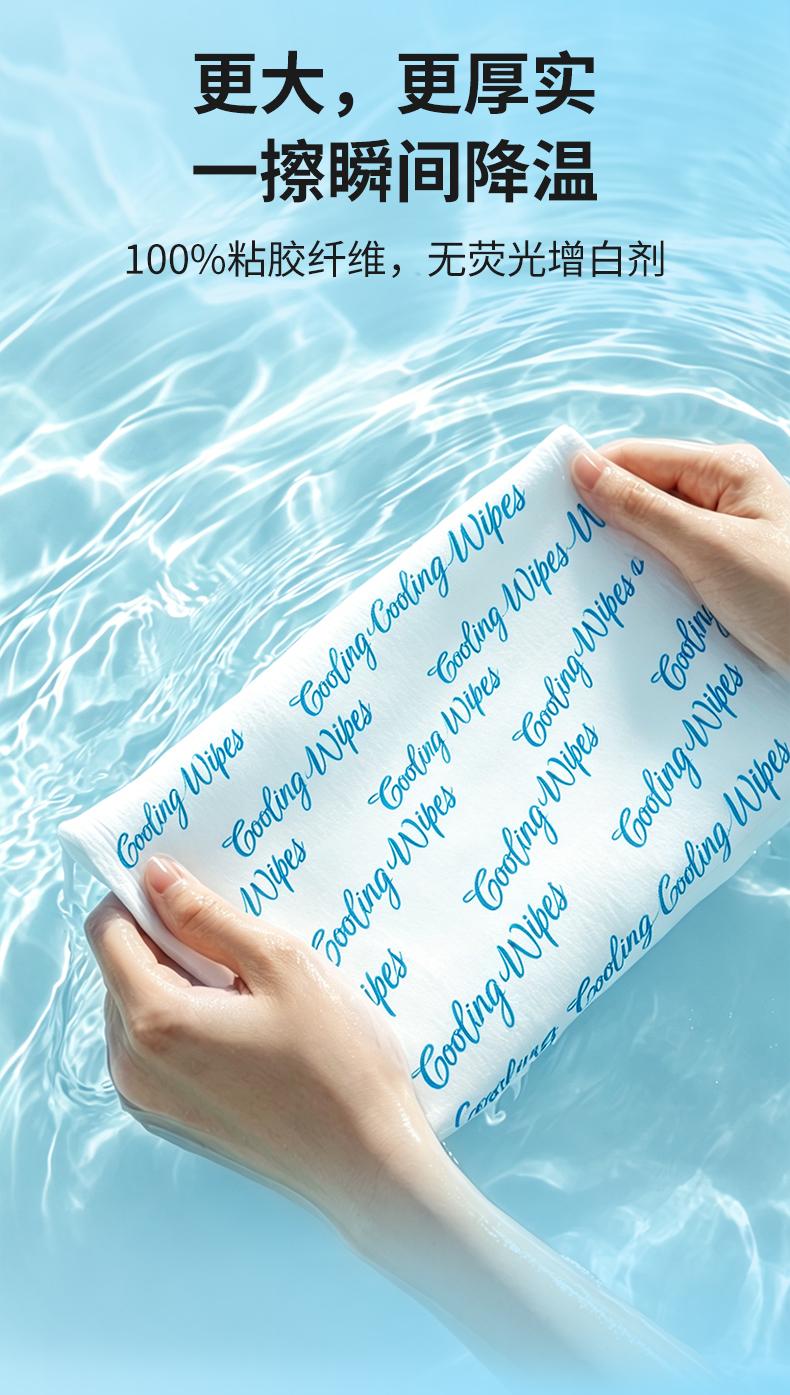 更大，更厚实
一擦瞬间降温
100%粘胶纤维，无荧光增白剂
Cooling Cooling Wipes
Cooling Wipes W
Cooling Wipes
Cooling Wipes
Cooling Wipes
Cooling Wipes
Cooling
Wipes
Cooling Wipes
Cooling Wipes
Cooling Wipes
ipes
Cooling Wipes
Cooling Cooling Wipes
Cooling